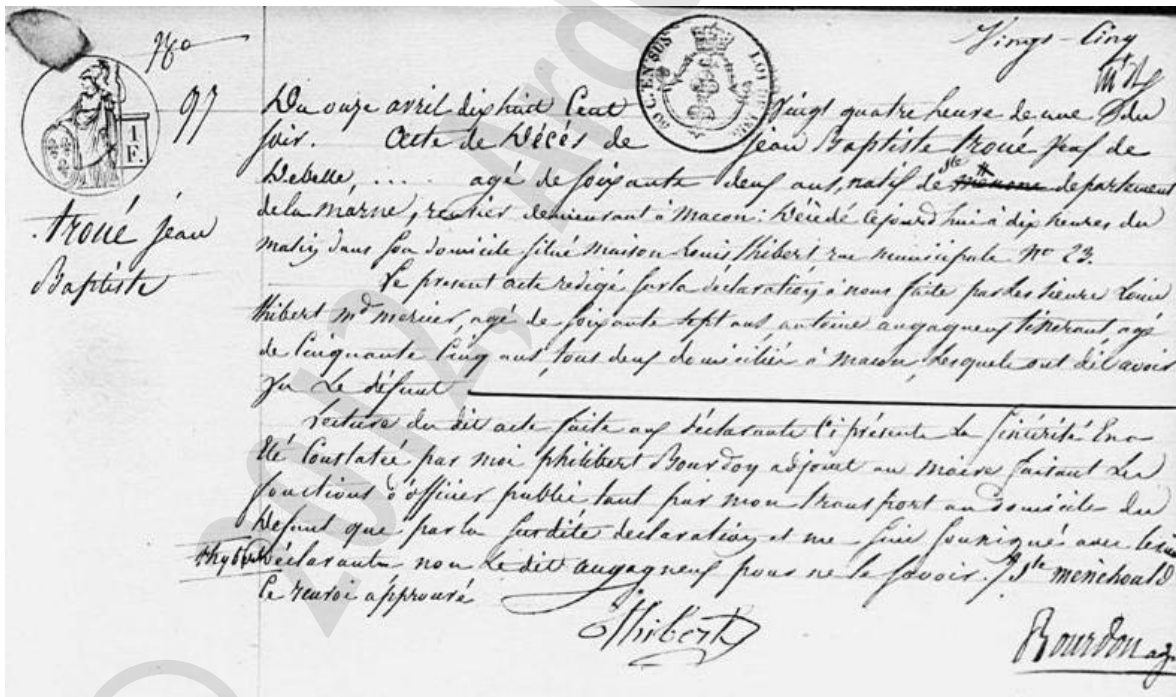 Vingt-Cinq
97
1 F.
50 C. EN SUS LOI DE
Du onze avril dix huit Cent Vingt quatre heure de une du
soir. Acte de Décès de jean Baptiste troué
Debelle, .... agé de soixante deux ans, natif de ste departement
de la marne, rentier demeurant à macon: Décédé cejourd'hui à dix heures du
matin dans son domicile situé maison Louis thibert rue municipale No 23.
troué jean
Baptiste
Le present acte redigé sur la déclaration à nous faite par les sieurs Louis
thibert md mercier, agé de soixante sept ans, antoine augagneux agé
de Cinquante Cinq ans, tous deux domicilié à macon, lesquels ont dit avoir
vu Le défunt
Lecture du dit acte faite aux déclarants Ci présents La sincérité En a
été Constatée par moi philibert Bourdon adjoint au maire faisant Les
fonctions d'officier public tant par mon transport au domicile du
Defunt que par la susdite declaration, et me suis sousigné avec le sieur
thybert Déclarant non Le dit augagneux pour ne le savoir. / ste menehould
Ce renvoi approuvé
Thibert
Bourdon adj